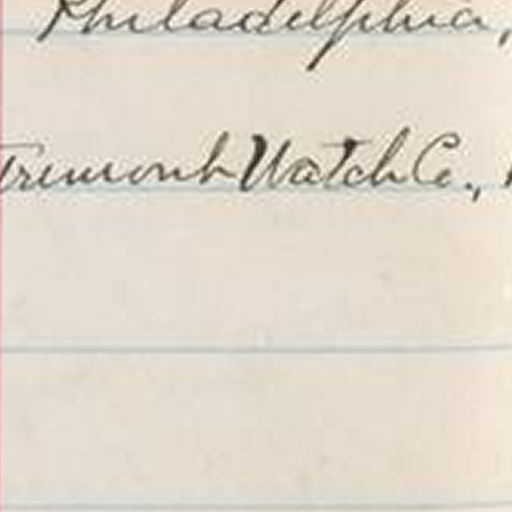 Philadelphia,
Tremont Watch Co.,